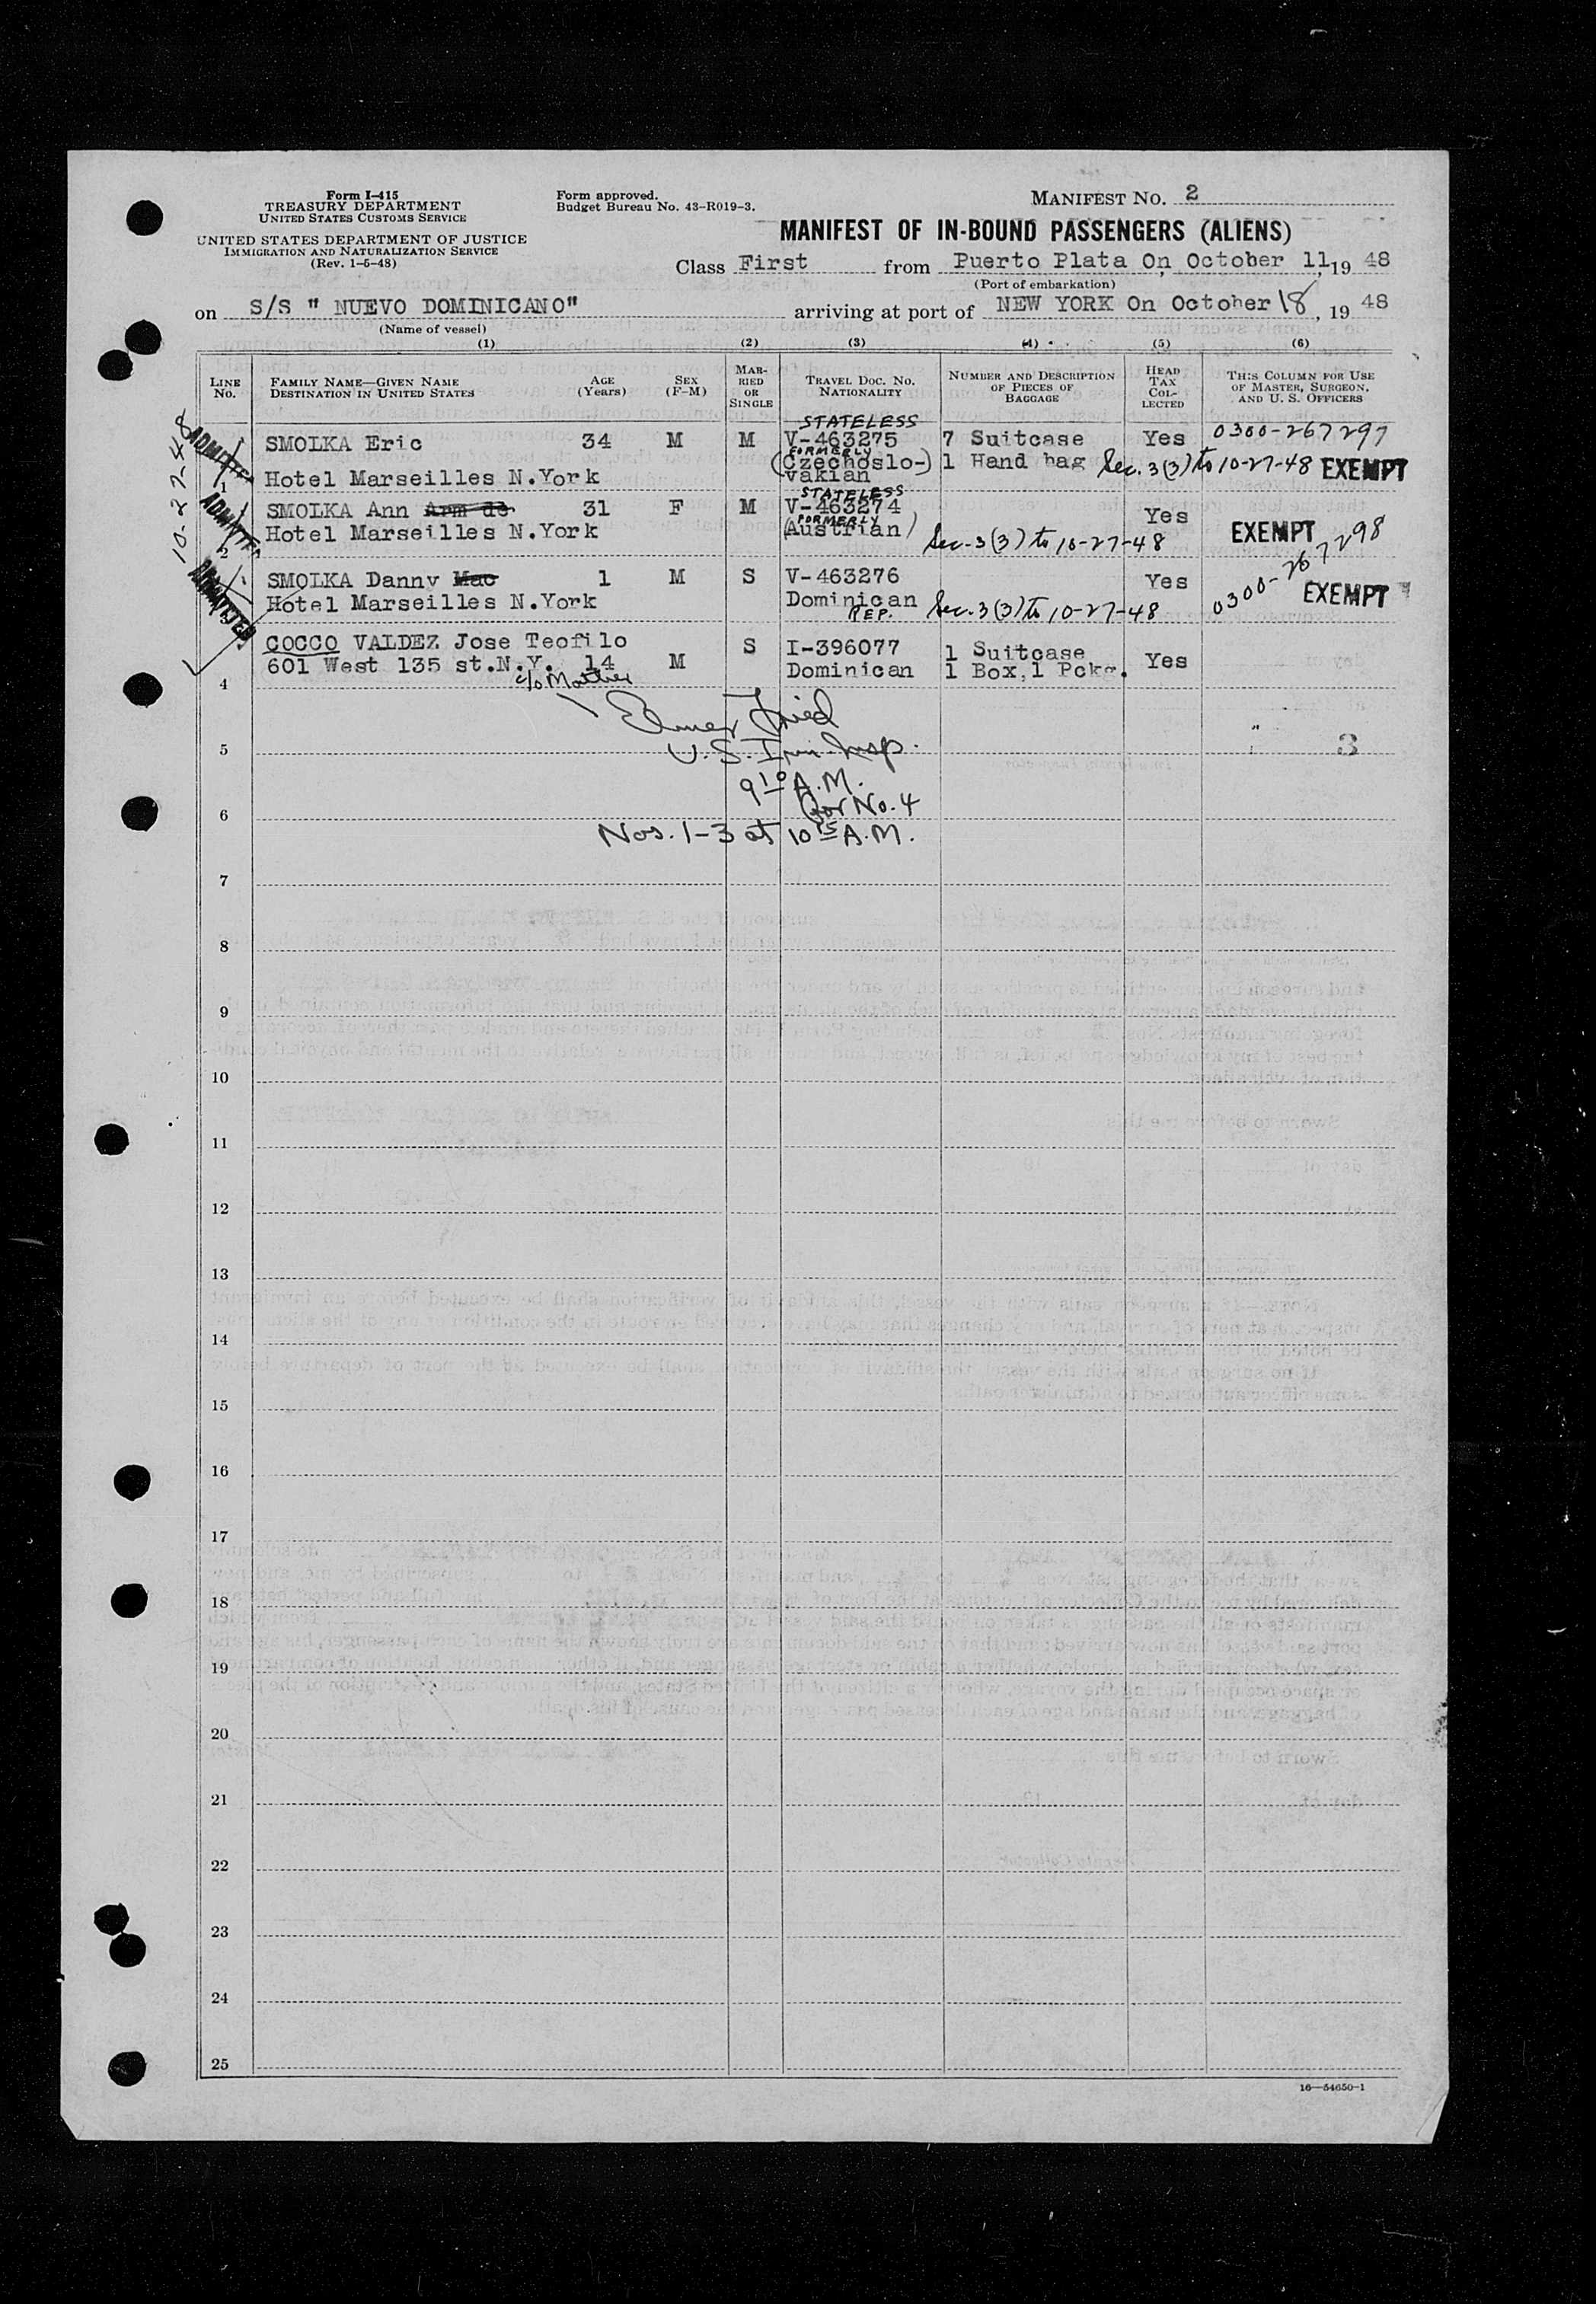 Form I-415
TREASURY DEPARTMENT
UNITED STATES CUSTOMS SERVICE
UNITED STATES DEPARTMENT OF JUSTICE
IMMIGRATION AND NATURALIZATION SERVICE
(Rev. 1-5-48)
Form approved.
Budget Bureau No. 43-R019-3.
MANIFEST NO. 2
MANIFEST OF IN-BOUND PASSENGERS (ALIENS)
Class First from Puerto Plata On October 11, 19 48
(Port of embarkation)
on S/S " NUEVO DOMINICANO" arriving at port of NEW YORK On October 18, 19 48
(Name of vessel)
(1) (2) (3) (4) (5) (6)
LINE NO.
FAMILY NAME—GIVEN NAME
DESTINATION IN UNITED STATES
AGE (Years)
SEX (F-M)
MAR-RIED OR SINGLE
TRAVEL DOC. NO.
NATIONALITY
NUMBER AND DESCRIPTION OF PIECES OF BAGGAGE
HEAD TAX COL-LECTED
THIS COLUMN FOR USE OF MASTER, SURGEON, AND U. S. OFFICERS
10-27-48
ADMITTED
STATELESS
SMOLKA Eric 34 M M V-463275 7 Suitcase Yes 0300-267297
FORMERLY
(Czechoslo-) 1 Hand bag Sec. 3(3) to 10-27-48 EXEMPT
vakian
1 Hotel Marseilles N.York
ADMITTED
STATELESS
SMOLKA Ann 31 F M V-463274 Yes
FORMERLY
2 Hotel Marseilles N.York (Austrian) Sec. 3(3) to 10-27-48 EXEMPT
0300-267298
ADMITTED
SMOLKA Danny Mac 1 M S V-463276 Yes
Hotel Marseilles N.York Dominican REP. Sec. 3(3) to 10-27-48 EXEMPT
COCCO VALDEZ Jose Teofilo S I-396077 1 Suitcase
601 West 135 st.N.Y. 14 M Dominican 1 Box,1 Pckg. Yes
4 c/o Mother
Elmer Fried
5 U.S. Imm. Insp. 3
9 10 A.M.
6 for No. 4
Nos. 1-3 at 10 15 A.M.
7
8
9
10
11
12
13
14
15
16
17
18
19
20
21
22
23
24
25
16—54650-1